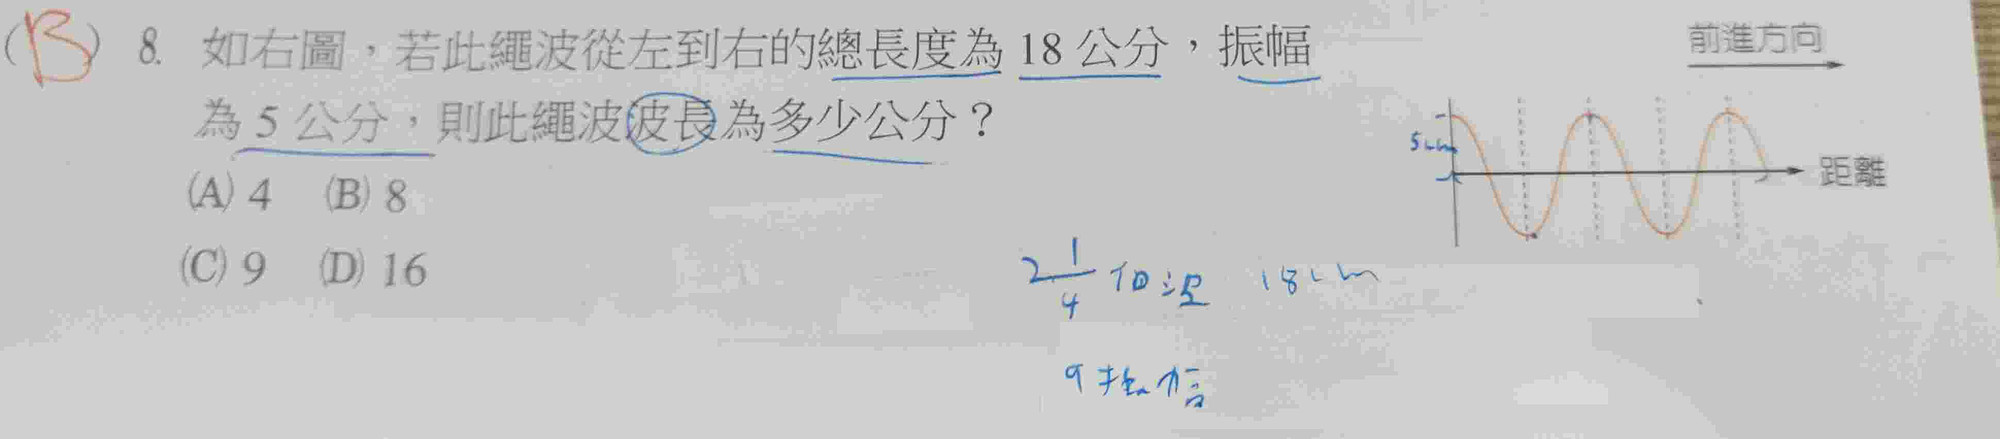 (B) 8. 如右圖，若此繩波從左到右的總長度為 18 公分，振幅
為 5 公分，則此繩波波長為多少公分？
(A) 4 (B) 8
(C) 9 (D) 16
前進方向
5cm
距離
2 1/4 個波 18cm
9振幅